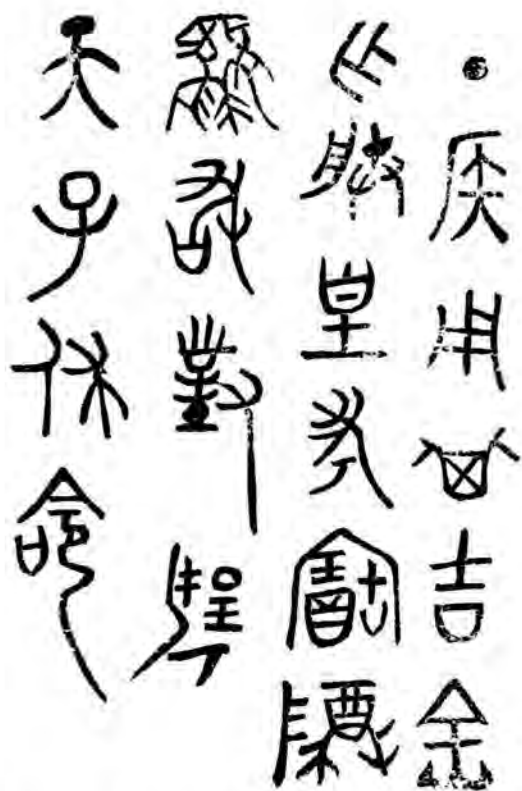 丁侯用吉金
乍朕皇考寶尊
彝敢對揚
天子休命